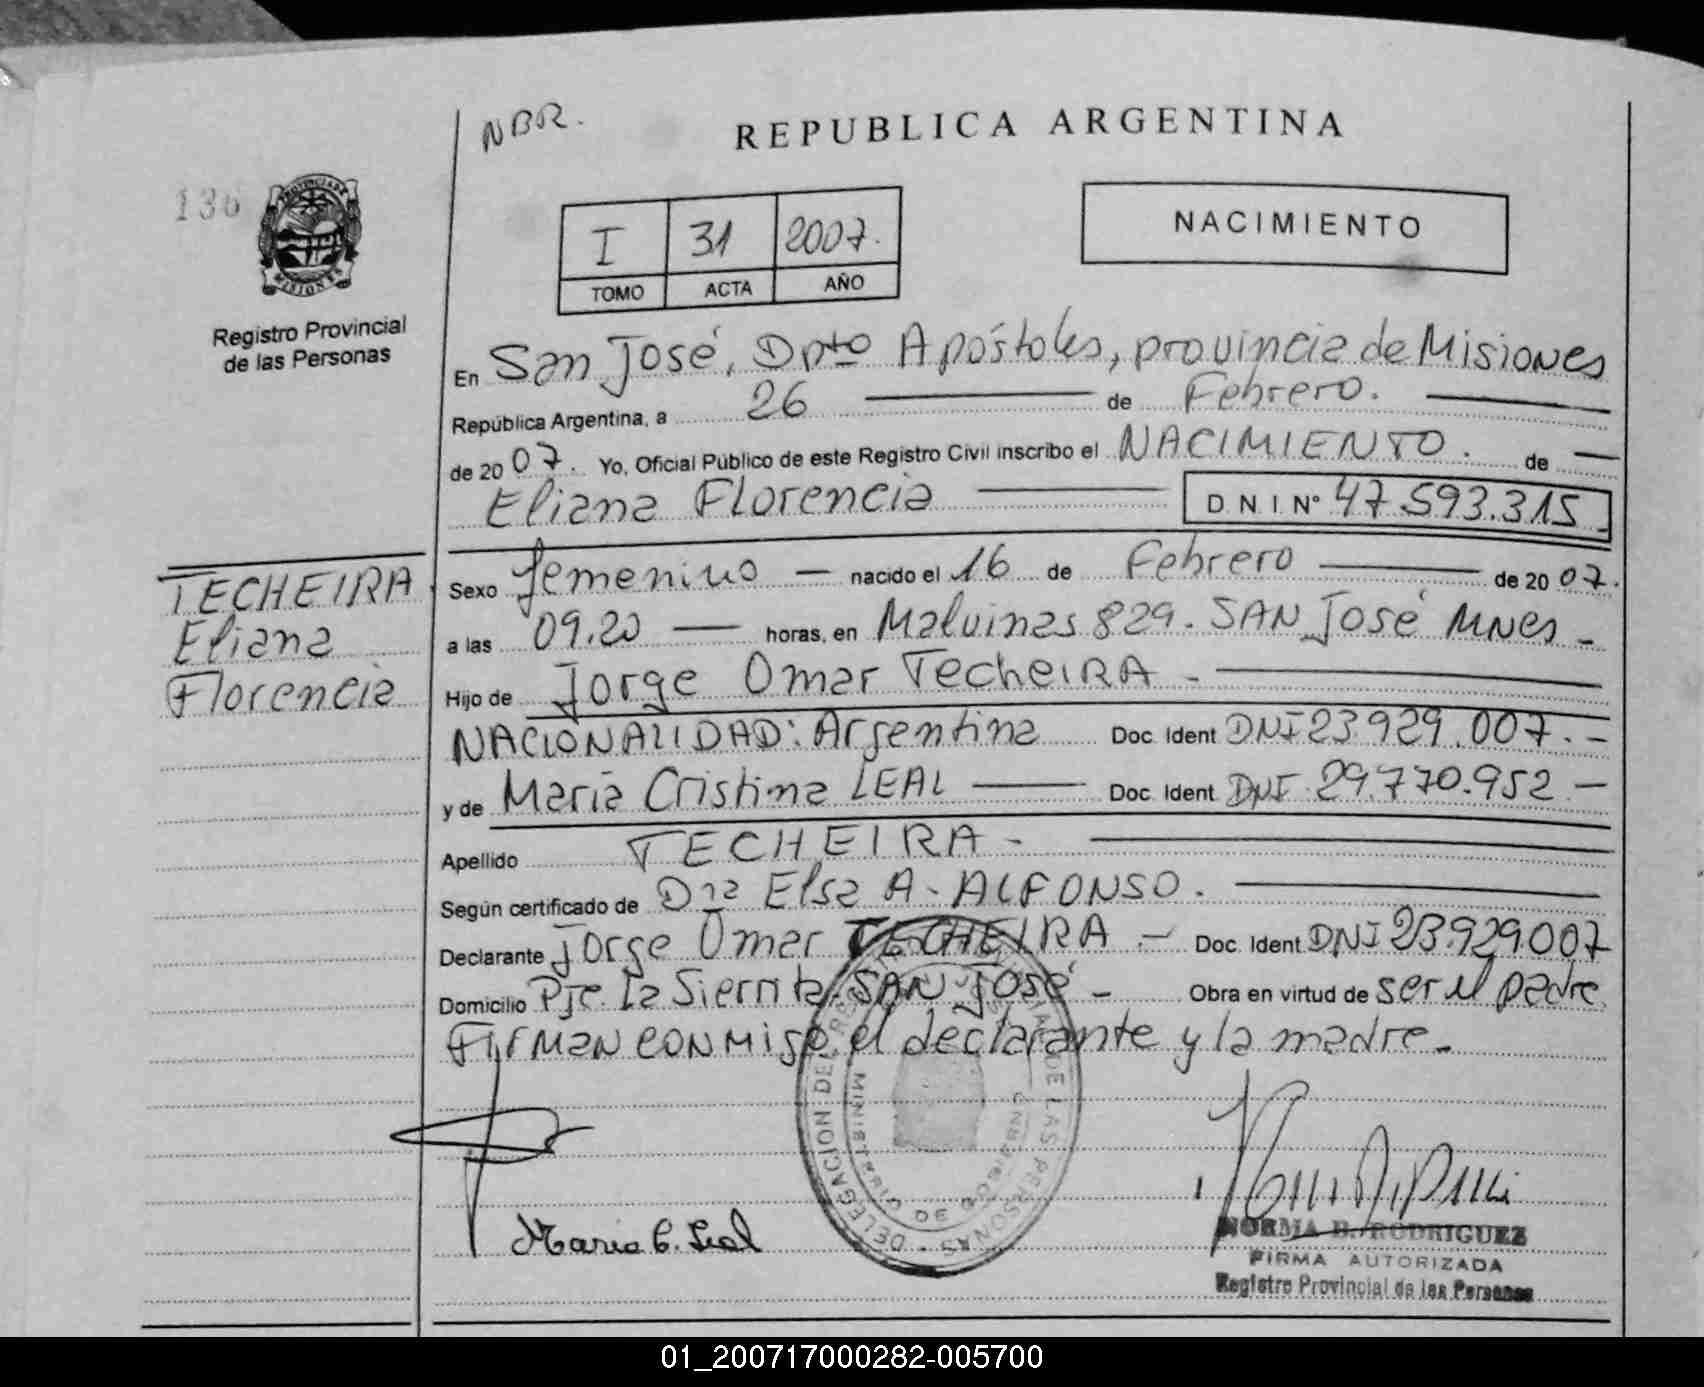 NBR.
REPUBLICA ARGENTINA
136
PROVINCIA DE
MISIONES
I 31 2007.
TOMO ACTA AÑO
NACIMIENTO
Registro Provincial
de las Personas
En San José, Dpto Apóstoles, provincia de Misiones
República Argentina, a 26 de Febrero.
de 2007. Yo, Oficial Público de este Registro Civil inscribo el NACIMIENTO. de
Eliana Florencia D.N.I. Nº 47.593.315
TECHEIRA
Eliana
Florencia
Sexo femenino — nacido el 16 de Febrero de 2007.
a las 09.20 — horas, en Malvinas 829. SAN José MNES -
Hijo de Jorge Omar TecheiRA -
NACIONALIDAD: Argentina Doc. Ident DNI 23.929.007.-
y de María Cristina LEAL Doc. Ident. DNI. 29.770.952.-
Apellido TECHEIRA -
Según certificado de Dra Elsa A. ALFONSO.
Declarante Jorge Omar TECHEIRA.- Doc. Ident. DNI 23.929.007
Domicilio Pje. La Sierrita. SAN José - Obra en virtud de ser el padre
Firman conmigo el declarante y la madre.
DELEGACION DEL REG DE LAS PERSONAS
MINISTERIO DE GOBIERNO
Maria C. Leal
NORMA B. RODRIGUEZ
FIRMA AUTORIZADA
Registro Provincial de las Personas
01_200717000282-005700